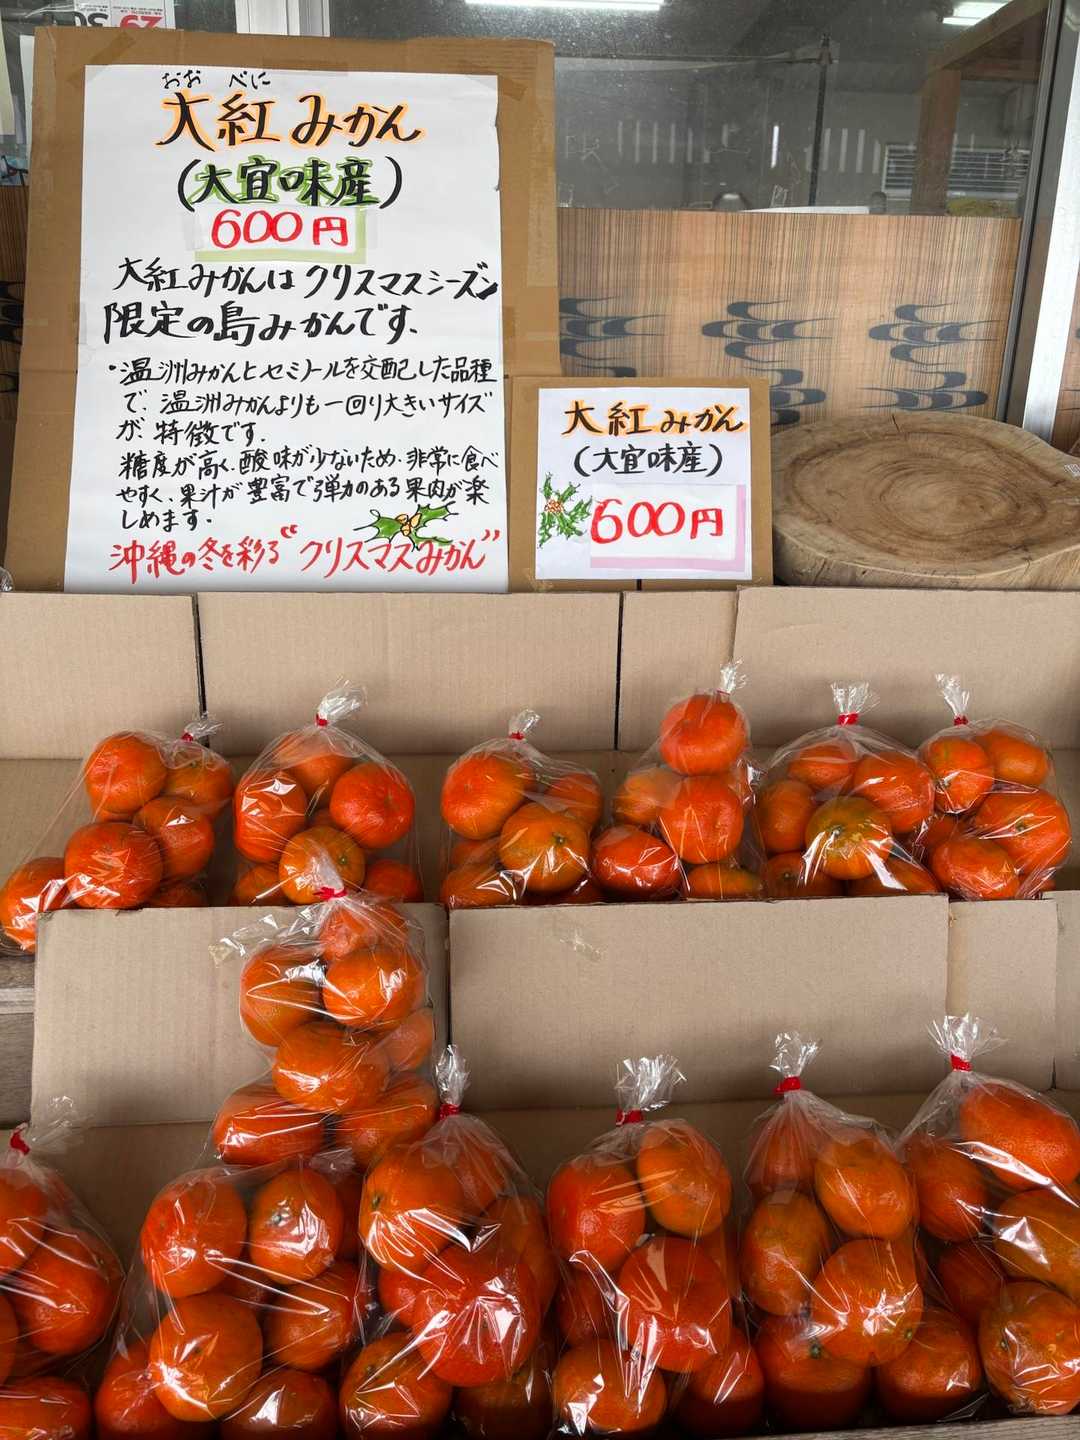 29
おお べに
大紅みかん
(大宜味産)
600円
大紅みかんはクリスマスシーズン
限定の島みかんです、
・温洲みかんとセミノールを交配した品種
で、温洲みかんよりも一回り大きいサイズ
が、特徴です.
糖度が高く、酸味が少ないため、非常に食べ
やすく、果汁が豊富で弾力のある果肉が楽
しめます.
沖縄の冬を彩る“クリスマスみかん”
大紅みかん
(大宜味産)
600円